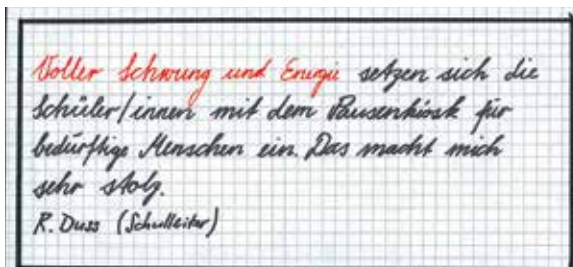 Voller Schwung und Energie setzen sich die
Schüler/innen mit dem Pausenkiosk für
bedürftige Menschen ein. Das macht mich
sehr stolz.
R. Duss (Schulleiter)